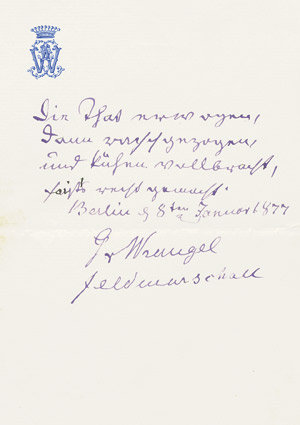 Die That erwogen,
Dann rasch gezogen,
und kühn vollbracht,
recht gemacht.
Berlin d 8ten Januar 1877
Gv Wrangel
Feldmarschall